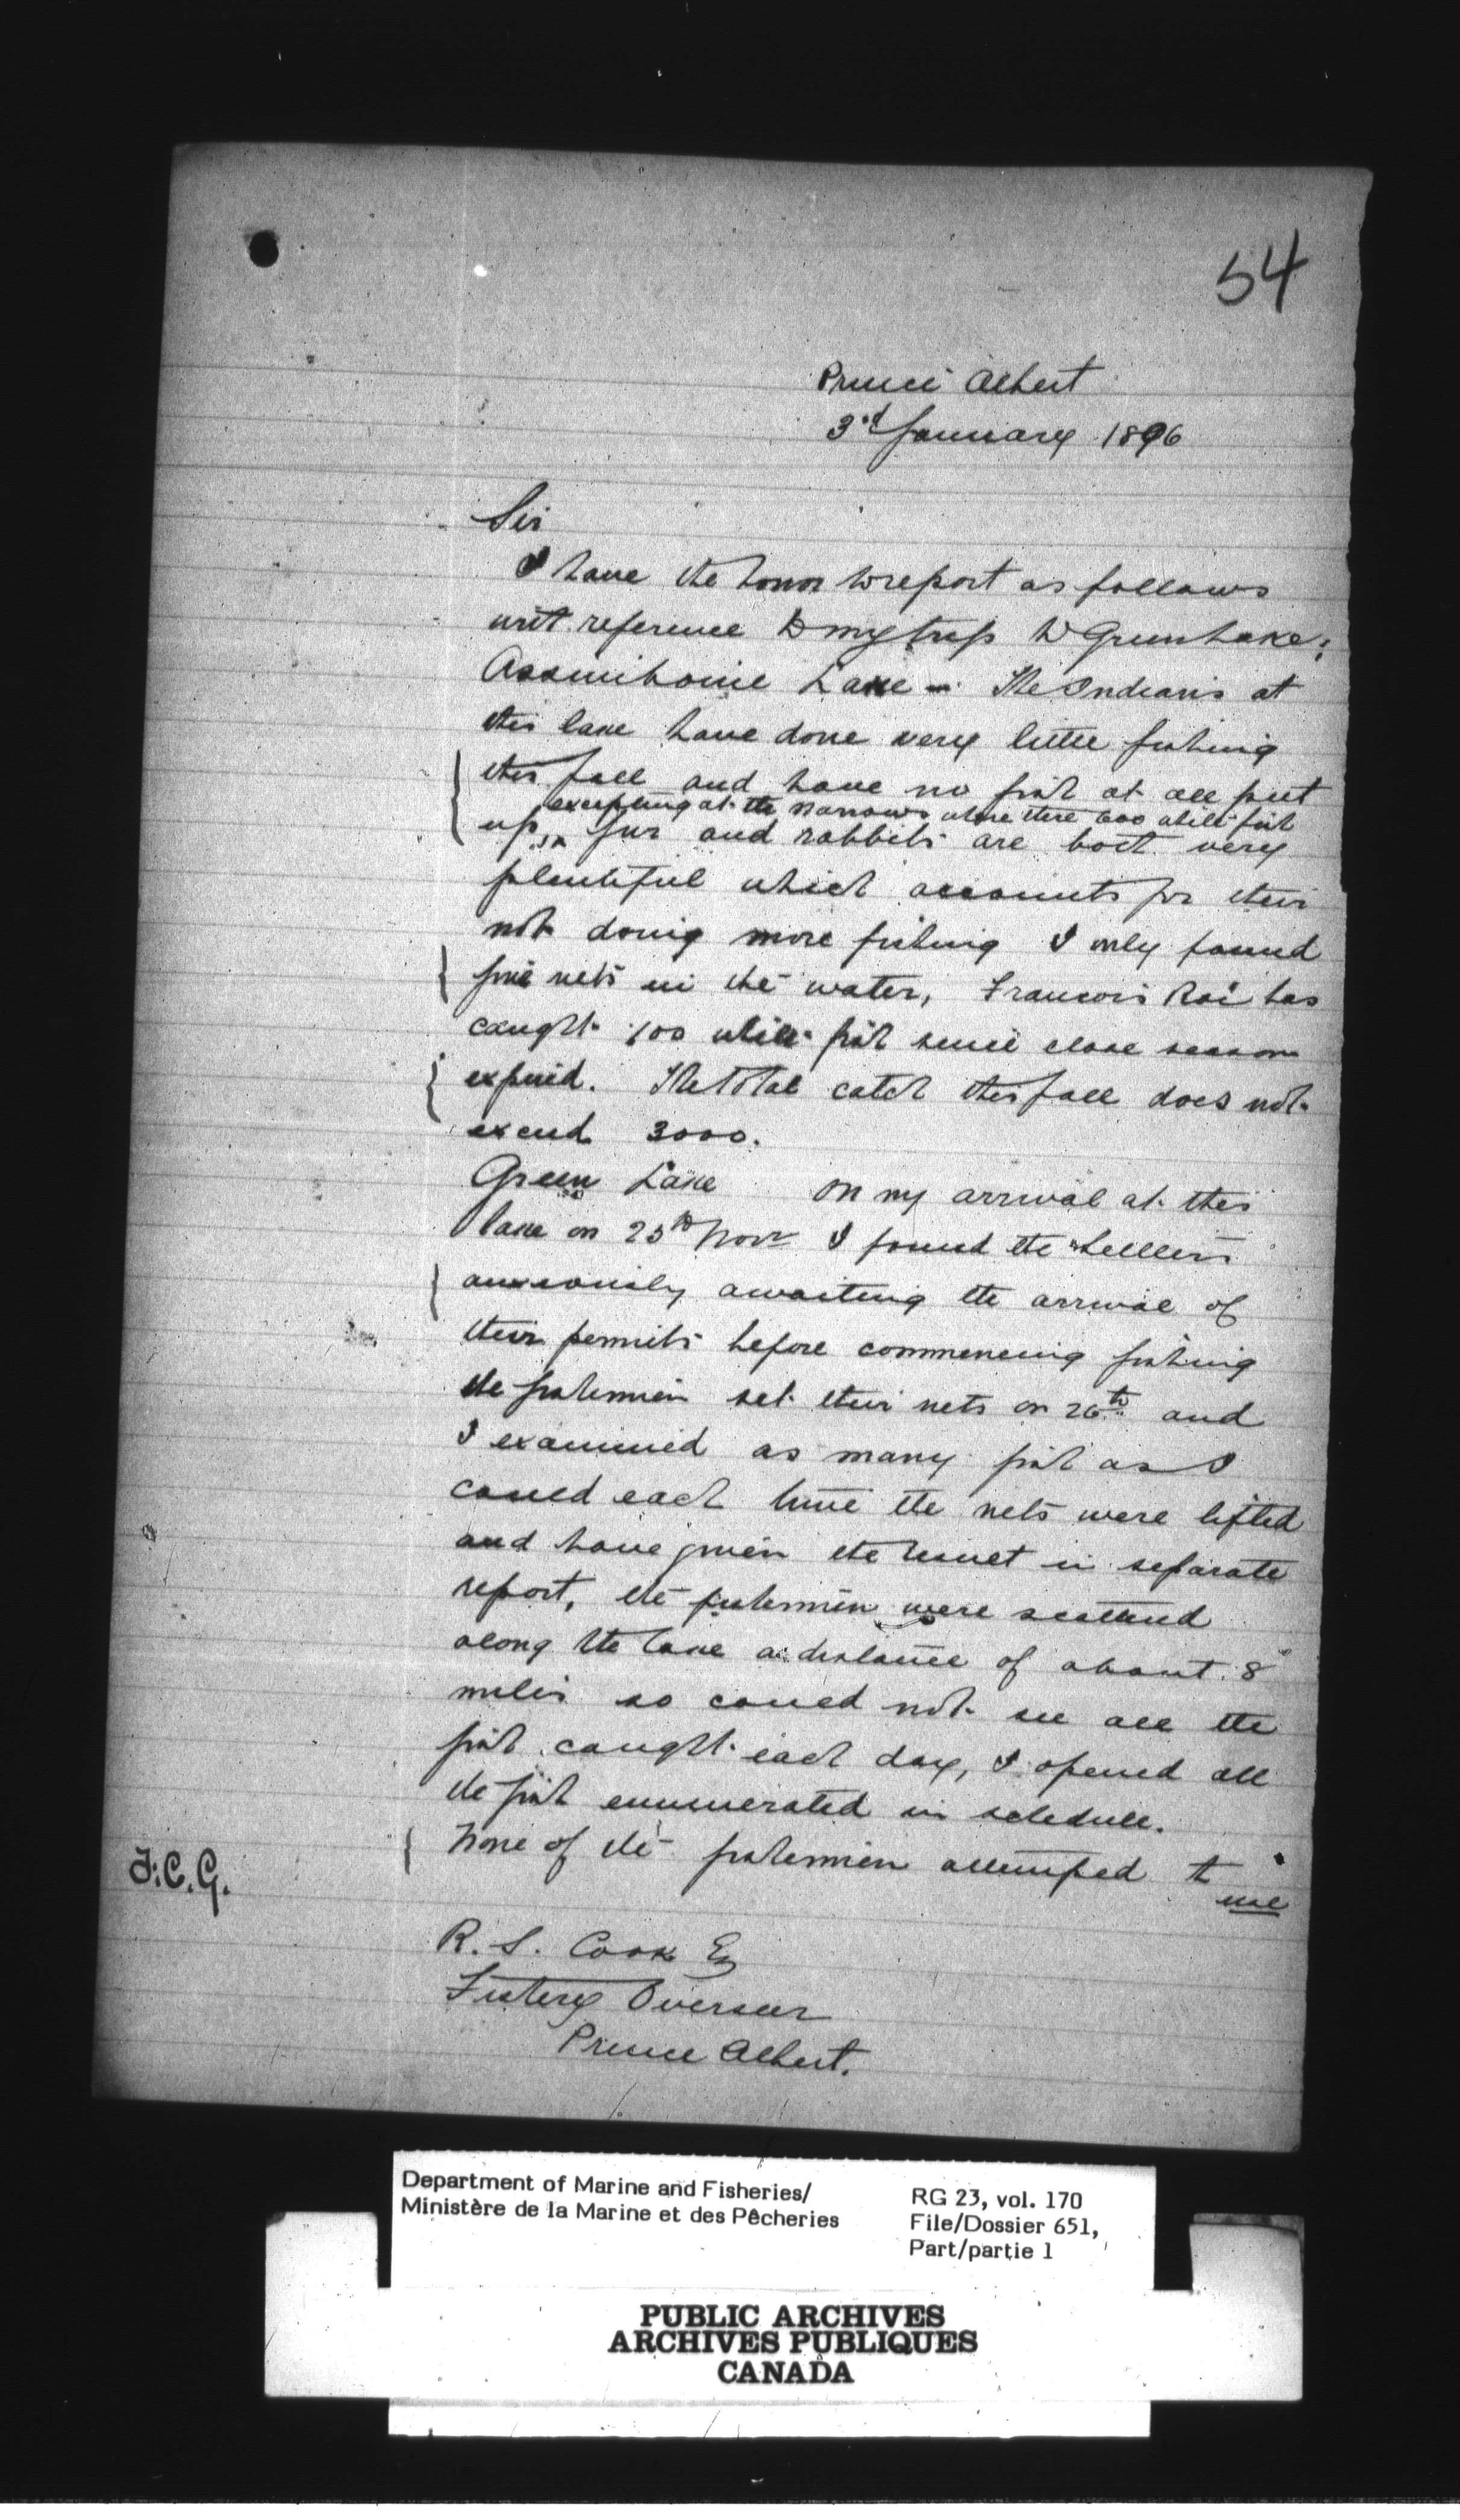 54
Prince Albert
3rd January 1896
Sir
I have the honor to report as follows
with reference to my trip to Green Lake;
Assiniboine Lake - The Indians at
this lake have done very little fishing
this fall and have no fish at all put
excepting at the narrows where there 600 white fish
up, fur and rabbits are both very
plentiful which accounts for their
not doing more fishing I only found
five nets in the water, Francois Roi has
caught 100 white fish since close season
expired. The total catch this fall does not
exceed 3000.
Green Lake on my arrival at this
lake on 25th Novr I found the settlers
anxiously awaiting the arrival of
their permits before commencing fishing
the fishermen set their nets on 26th and
I examined as many fish as I
could each time the nets were lifted
and have given the result in separate
report, the fishermen were scattered
along the lake a distance of about 8
miles so could not see all the
fish caught each day, I opened all
the fish enumerated in schedule.
None of the fishermen attempted to
use
F.C.G.
R. S. Cook Esq
Fishery Overseer
Prince Albert.
Department of Marine and Fisheries/
Ministère de la Marine et des Pêcheries
RG 23, vol. 170
File/Dossier 651,
Part/partie 1
PUBLIC ARCHIVES
ARCHIVES PUBLIQUES
CANADA